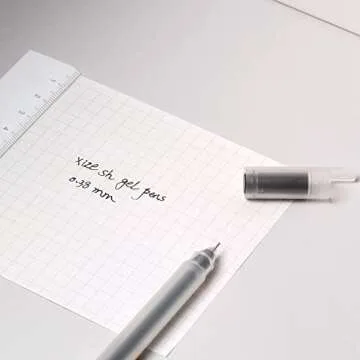 xize sh gel pens
0.38 mm